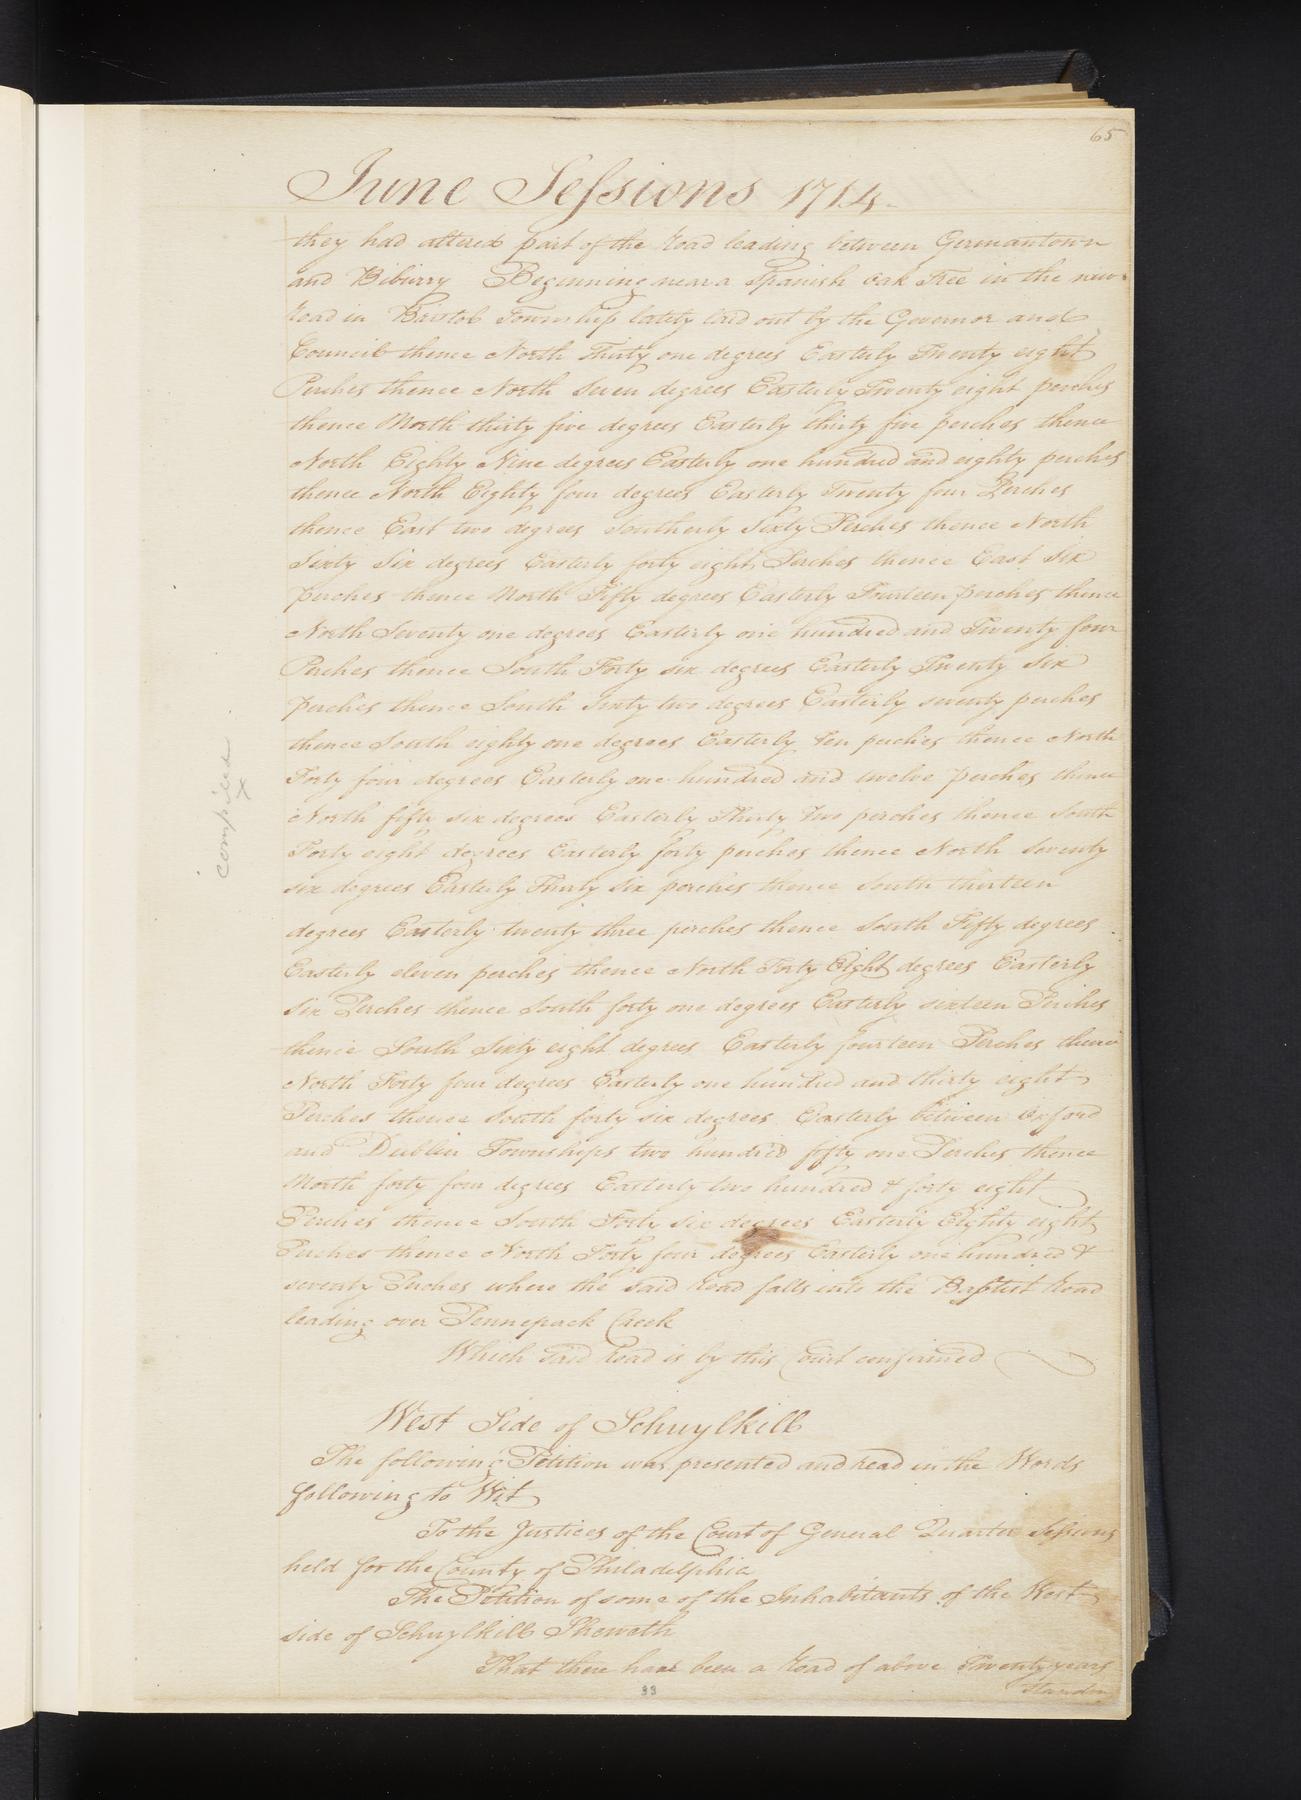 65
June Sessions 1714
they had altered part of the Road leading between Germantown
and Biburry Beginning near a Spanish oak Tree in the new
Road in Bristol Township lately laid out by the Governor and
Council thence North Thirty one degrees Easterly Twenty eight
Perches thence North Seven degrees Easterly Twenty eight perches
thence North thirty five degrees Easterly thirty five perches thence
North Eighty Nine degrees Easterly one hundred and eighty perches
thence North Eighty four degrees Easterly Twenty four Perches
thence East two degrees Southerly Sixty Perches thence North
Sixty Six degrees Easterly forty eight Perches thence East Six
perches thence North Fifty degrees Easterly Fourteen perches thence
North Seventy one degrees Easterly one hundred and Twenty four
Perches thence South Forty six degrees Easterly Twenty Six
perches thence South Sixty two degrees Easterly seventy perches
thence South eighty one degrees Easterly Ten perches thence North
Forty four degrees Easterly one hundred and twelve perches thence
North fifty six degrees Easterly Thirty Two perches thence South
Forty eight degrees Easterly forty perches thence North Seventy
six degrees Easterly Thirty Six perches thence South thirteen
degrees Easterly twenty three perches thence South Fifty degrees
Easterly eleven perches thence North Forty Eight degrees Easterly
Six Perches thence South forty one degrees Easterly sixteen Perches
thence South Sixty eight degrees Easterly fourteen Perches thence
North Forty four degrees Easterly one hundred and thirty eight
Perches thence South forty six degrees Easterly between Oxford
and Dublin Townships two hundred fifty one Perches thence
North forty four degrees Easterly two hundred & forty eight
Perches thence South Forty Six degrees Easterly Eighty eight
Perches thence North Forty four degrees Easterly one hundred &
seventy Perches where the said Road falls into the Baptist Road
leading over Pennepack Creek
Which said Road is by this Court confirmed
West Side of Schuylkill
The following Petition was presented and Read in the Words
following to Wit
To the Justices of the Court of General Quarter Sessions
held for the County of Philadelphia
The Petition of some of the Inhabitants of the West
side of Schuylkill Sheweth
That there have been a Road of above Twenty years
standing
compiled
x
33